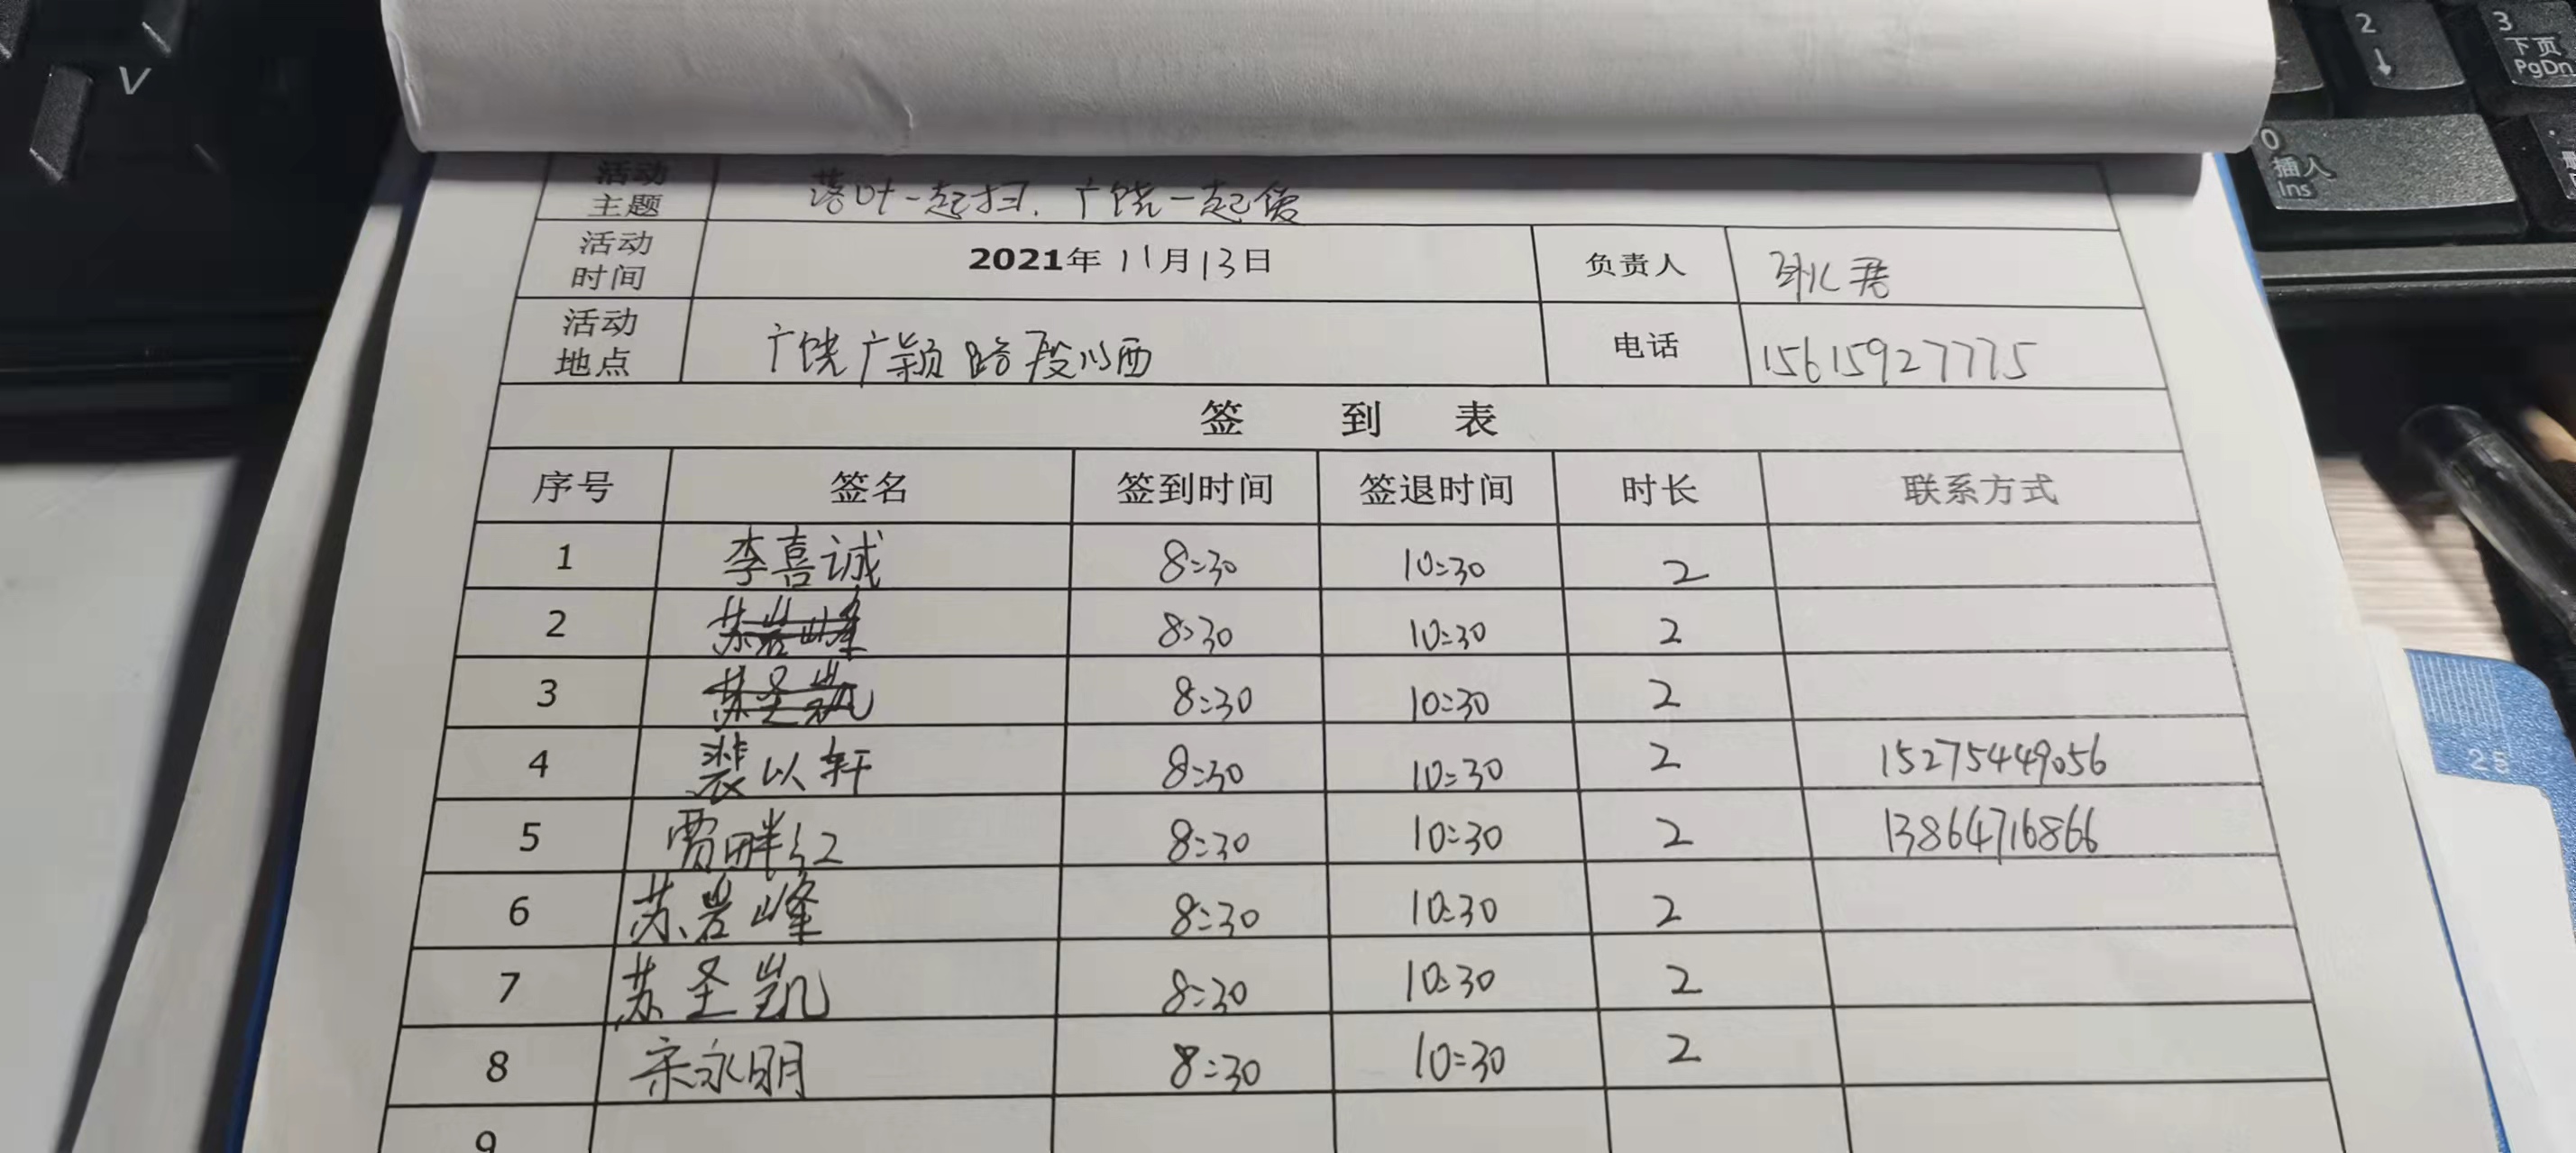 活动主题 落叶一起扫,广饶一起爱
活动时间 2021年11月13日 负责人
活动地点 广饶广颖路段以西 电话 15615927775
签到表
序号 签名 签到时间 签退时间 时长 联系方式
1 李喜诚 8:30 10:30 2
2 苏岩峰 8:30 10:30 2
3 苏圣凯 8:30 10:30 2
4 裴以轩 8:30 10:30 2 15275449056
5 贾畔红 8:30 10:30 2 13864716866
6 苏岩峰 8:30 10:30 2
7 苏圣凯 8:30 10:30 2
8 宋永明 8:30 10:30 2
9
V
2
↓
3
下页
PgDn
0
插入
Ins